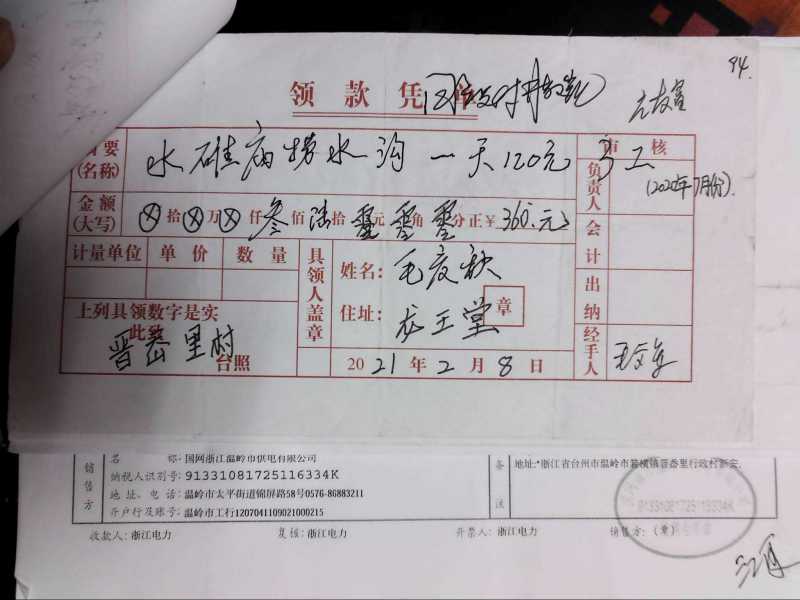 94.
领款凭
摘要
(名称)
水碓庙捞水沟 一天120元
审核
(2020年7月份).
负责人
金额
(大写)
⊗拾⊗万⊗仟叁佰陆拾零元零角零分正¥360.元
会计
计量单位 单价 数量
具领人盖章
姓名:毛度秋
住址:龙王堂
章
出纳
上列具领数字是实
此致
晋岙里村
台照
2021年2月8日
经手人
销售方
名称:国网浙江温岭市供电有限公司
纳税人识别号:91331081725116334K
地址、电话:温岭市太平街道锦屏路58号0576-86883211
开户行及账号:温岭市工行1207041109021000215
备注
地址:*浙江省台州市温岭市箬横镇晋岙里行政村新安.
91331081725116334K
收款人:浙江电力 复核:浙江电力 开票人:浙江电力 销售方:(章)